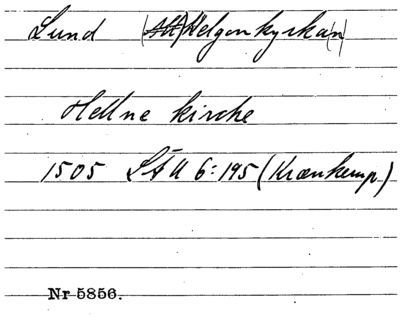 Lund (All)Helgonkyrka(n)
Hellne kirche
1505 SÄU 6:195 (Krænkemp)
Nr 5856.